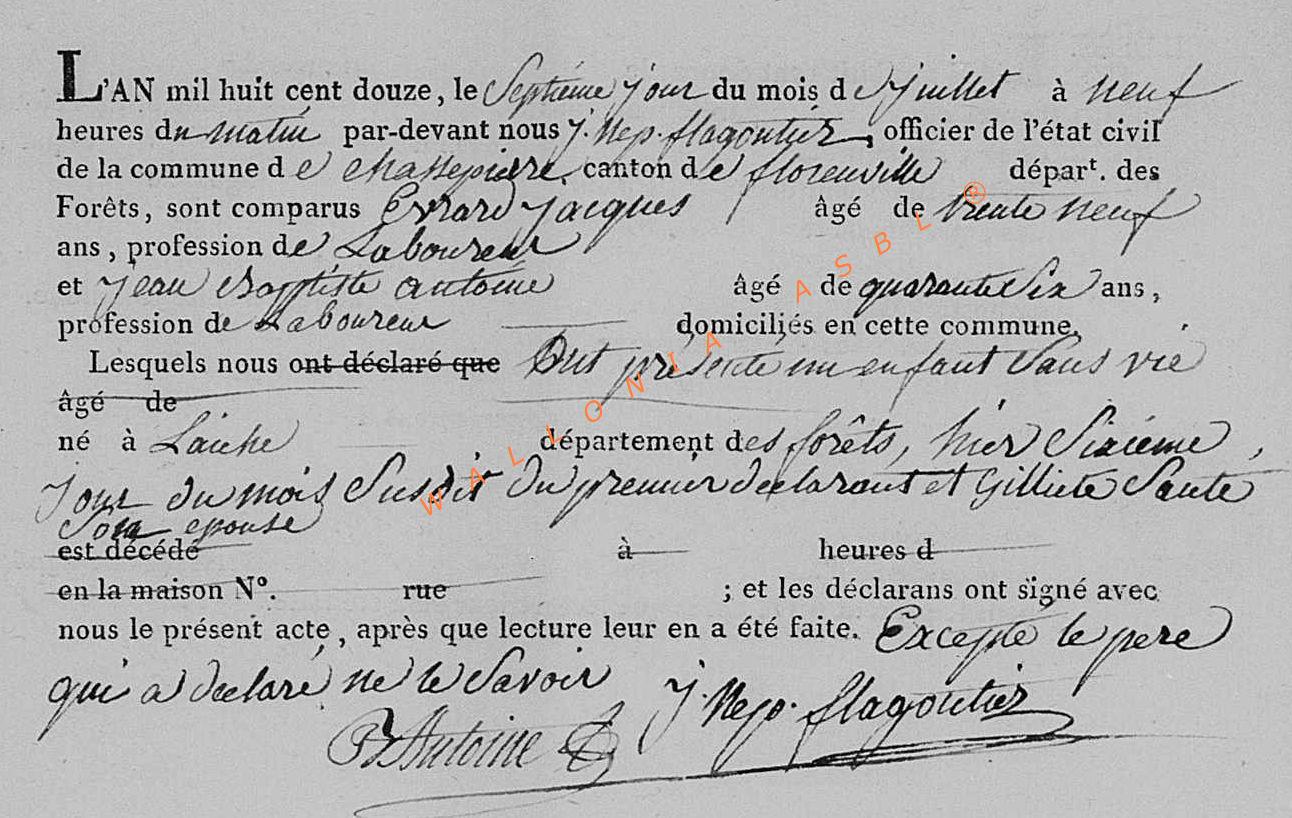 L'AN mil huit cent douze, le Septième jour du mois de juillet à neuf
heures du matin par-devant nous J. Nep. flagoutier, officier de l'état civil
de la commune de chassepierre, canton de florenville départ. des
Forêts, sont comparus Evrard Jacques âgé de trente neuf
ans, profession de Laboureur
et Jean Baptiste antoine âgé de quarante Six ans,
profession de Laboureur domiciliés en cette commune.
Lesquels nous ont déclaré que Ont présenté un enfant Sans vie
âgé de
né à Laiche département des forêts, hier Sixième,
Jour du mois Susdit du premier declarant et Gilliete Sante
Son epouse
est décédé à heures d
en la maison N°. rue ; et les déclarans ont signé avec
nous le présent acte, après que lecture leur en a été faite. Excepté le pere
qui a declaré ne le Savoir
J. Nep. flagoutier
JB Antoine
WALLONIA ASBL ®